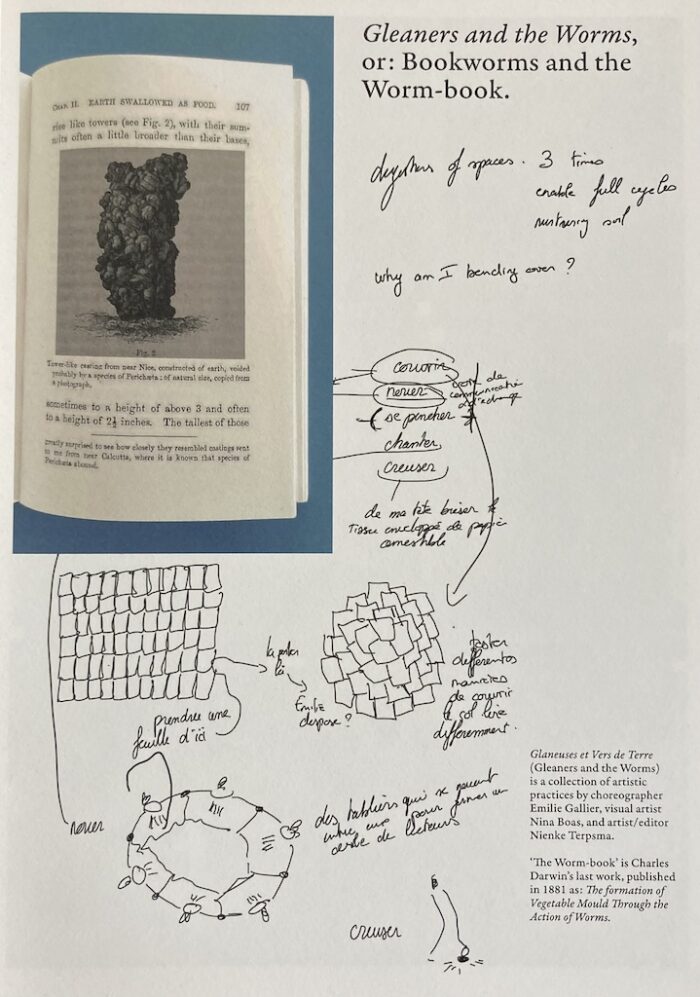 Gleaners and the Worms,
or: Bookworms and the
Worm-book.
CHAP. II. EARTH SWALLOWED AS FOOD. 107
rise like towers (see Fig. 2), with their sum-
mits often a little broader than their bases,
Fig. 2
Tower-like casting from near Nice, constructed of earth, voided
probably by a species of Perichæta: of natural size, copied from
a photograph.
sometimes to a height of above 3 and often
to a height of 2½ inches. The tallest of those
greatly surprised to see how closely they resembled castings sent
to me from near Calcutta, where it is known that species of
Perichæta abound.
of spaces. 3 times
enable full cycles
nurturing soil
why am I bending over ?
couvrir
nouer
se pencher
chanter
creuser
de
communication
de ma tête briser le
tissu enveloppé de papier
comestible
la porter
là
Emilie
dispose ?
prendre une
feuille d'ici
tester
differentes
manieres
de couvrir
le sol
differemment.
nouer
des tabliers qui se nouent
entre eux pour former un
cercle de lecteurs
creuser
Glaneuses et Vers de Terre
(Gleaners and the Worms)
is a collection of artistic
practices by choreographer
Emilie Gallier, visual artist
Nina Boas, and artist/editor
Nienke Terpsma.
'The Worm-book' is Charles
Darwin's last work, published
in 1881 as: The formation of
Vegetable Mould Through the
Action of Worms.